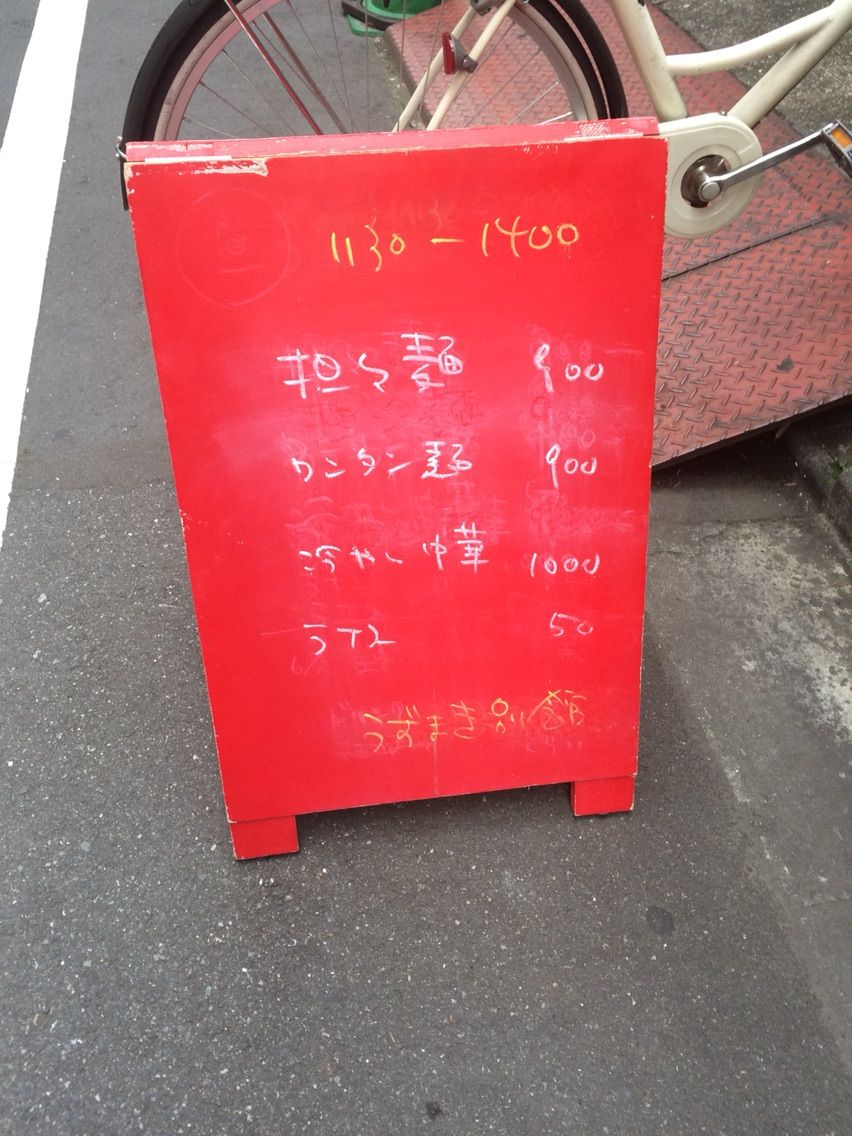 1130 - 1400
担々麺 900
カンタン麺 900
冷やし中華 1000
ライス 50
うずまき別館